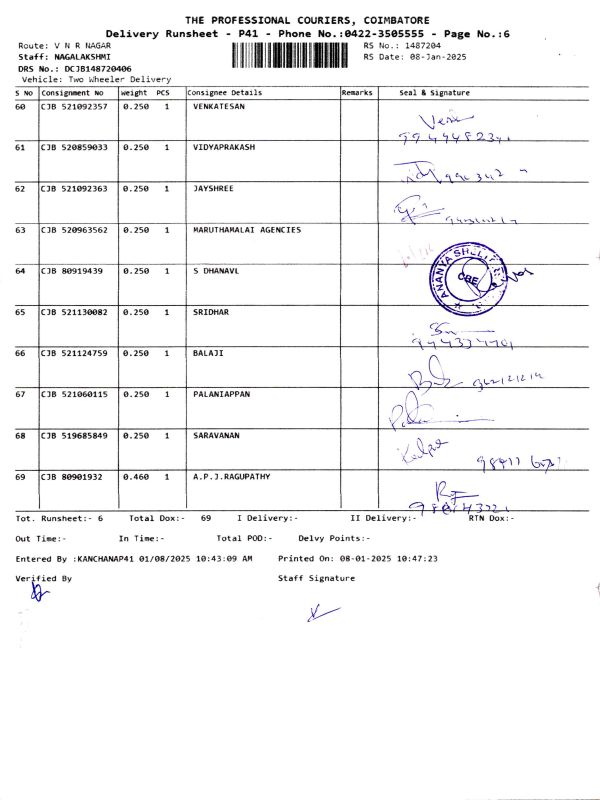 THE PROFESSIONAL COURIERS, COIMBATORE
Delivery Runsheet - P41 - Phone No.:0422-3505555 - Page No.:6
Route: V N R NAGAR RS No.: 1487204
Staff: NAGALAKSHMI RS Date: 08-Jan-2025
DRS No.: DCJB148720406
Vehicle: Two Wheeler Delivery
S No Consignment No Weight PCS Consignee Details Remarks Seal & Signature
60 CJB 521092357 0.250 1 VENKATESAN
61 CJB 520859033 0.250 1 VIDYAPRAKASH
62 CJB 521092363 0.250 1 JAYSHREE
63 CJB 520963562 0.250 1 MARUTHAMALAI AGENCIES
64 CJB 80919439 0.250 1 S DHANAVL
ANANYA CBE
65 CJB 521130082 0.250 1 SRIDHAR
66 CJB 521124759 0.250 1 BALAJI
67 CJB 521060115 0.250 1 PALANIAPPAN
68 CJB 519685849 0.250 1 SARAVANAN
69 CJB 80901932 0.460 1 A.P.J.RAGUPATHY
Tot. Runsheet:- 6 Total Dox:- 69 I Delivery:- II Delivery:- RTN Dox:-
Out Time:- In Time:- Total POD:- Delvy Points:-
Entered By :KANCHANAP41 01/08/2025 10:43:09 AM Printed On: 08-01-2025 10:47:23
Verified By Staff Signature